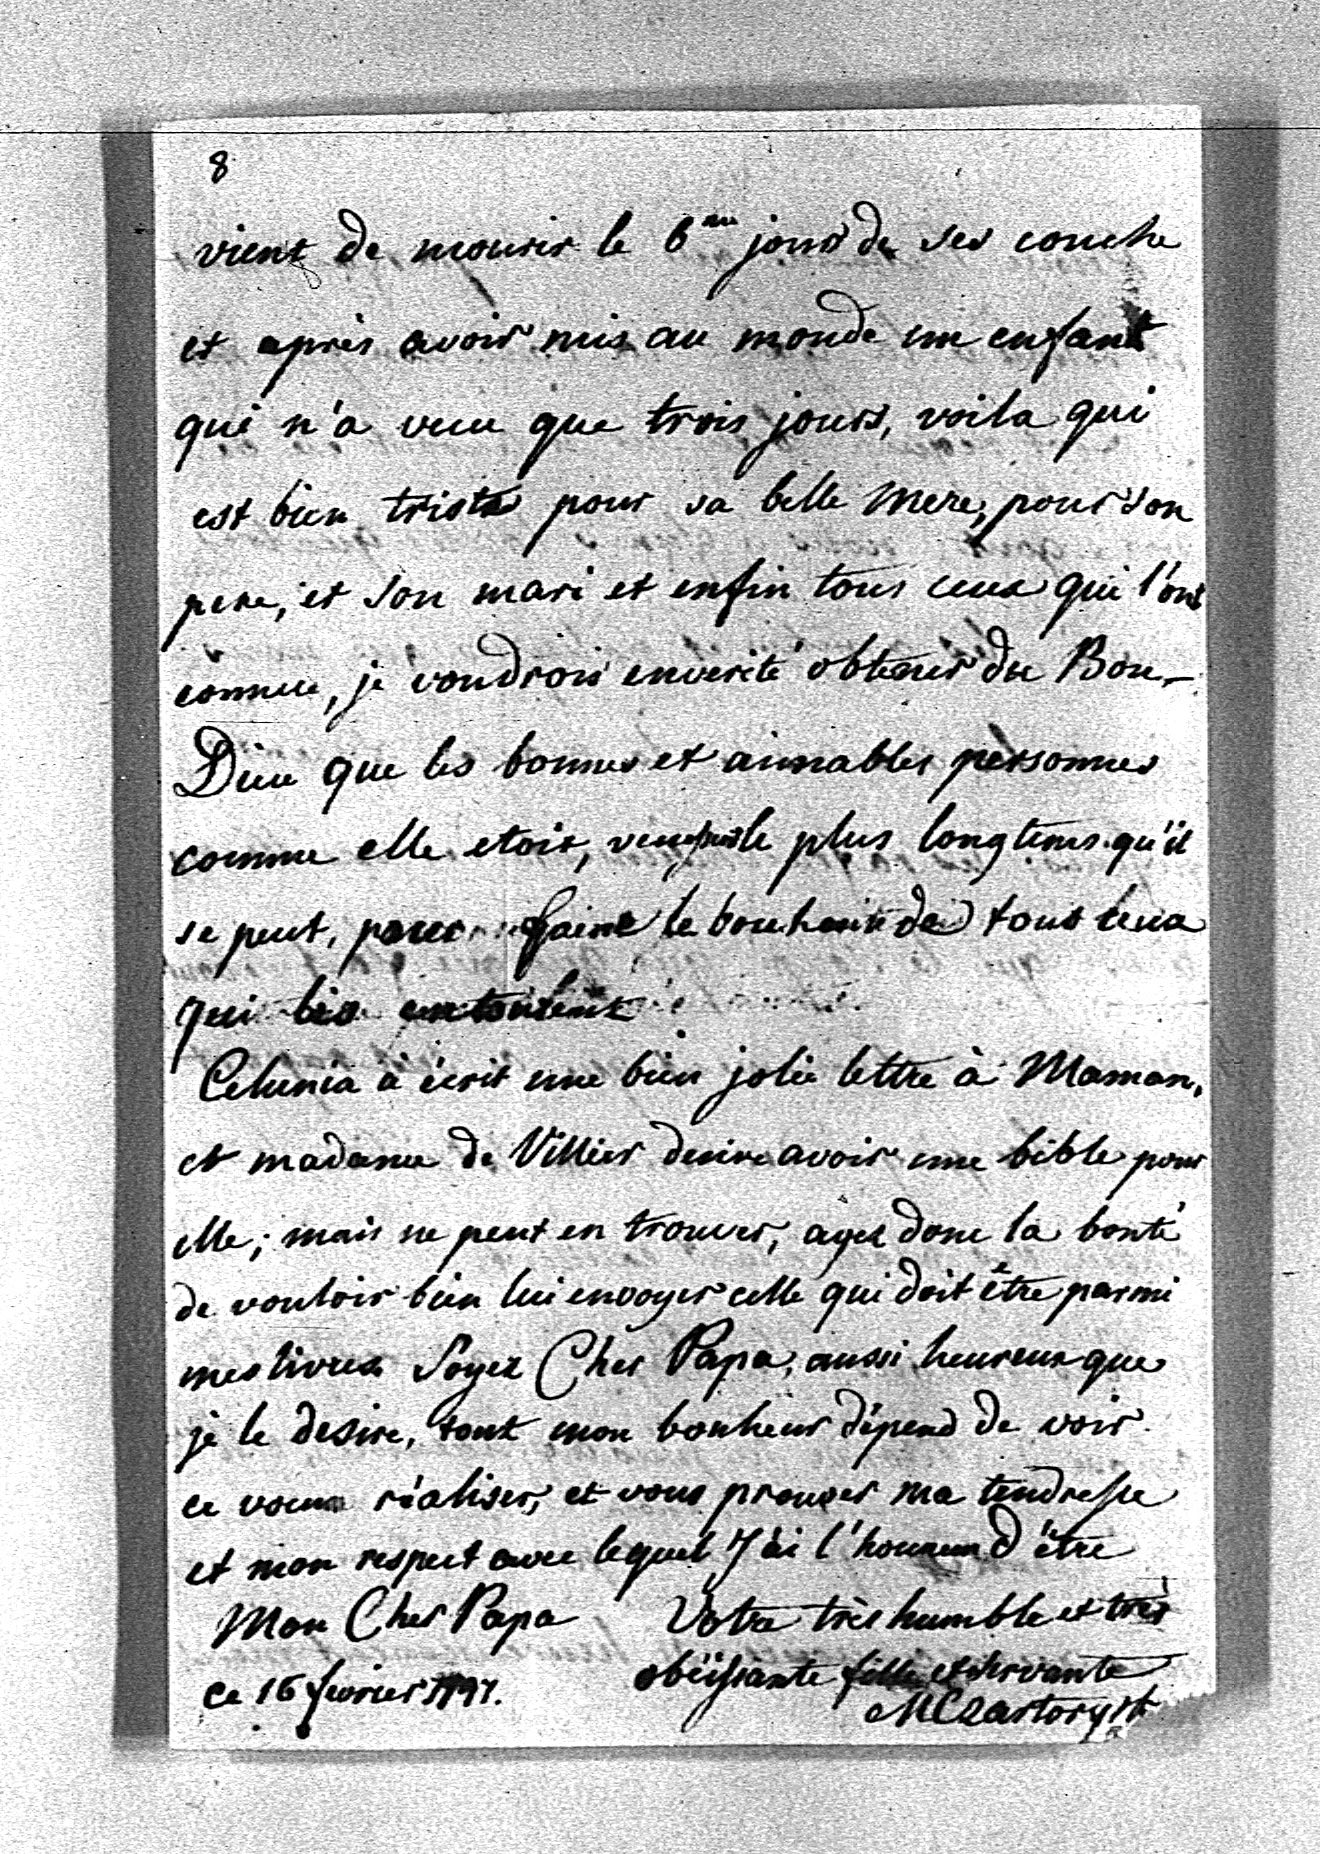 8
vient de mourir le 6me jour de ses couche
et après avoir mis au monde un enfant
qui n'a vecu que trois jours, voila qui
est bien triste pour sa belle mere, pour son
pere, et son mari et enfin tous ceux qui l'ont
connue, je voudrois enverité obtenir du Bon
Dieu que les bonnes et aimables personnes
comme elle etoit, le plus longtems qu'il
se peut, pour faire le bonheur de tous ceux
qui les entourent
Celunia a écrit une bien jolie lettre à Maman,
et madame de Villier desire avoir une bible pour
elle; mais ne peut en trouver, ayez donc la bonté
de vouloir bien lui envoyer celle qui doit être parmi
mes livres Soyez Cher Papa, aussi heureux que
je le desire, tout mon bonheur dépend de voir
ce voeux réaliser, et vous prouver ma tendresse
et mon respect avec lequel J'ai l'honneur d'être
Mon Cher Papa Votre très humble et très
obéissante fille et servante
ce 16 fevrier 1797.
MCzartoryska